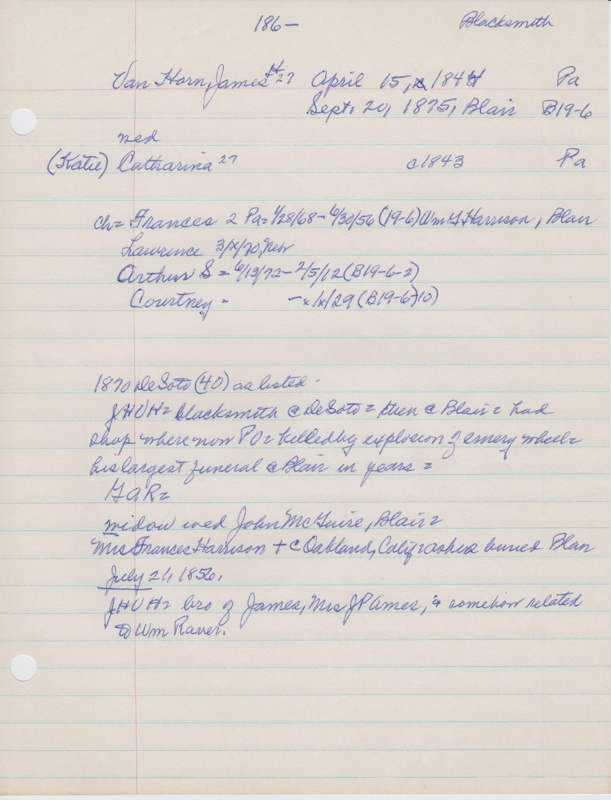 186- Blacksmith
Van Horn, James H 27 April 15, 1844 Pa
Sept. 20, 1875, Blair B19-6
(Katie) Catharina 27 c1843 Pa
ch= Frances 2 Pa= 1/28/68- 6/30/56 (19-6) Wm H Harrison, Blair
Lawrence 3/x/70, Nebr
Arthur S = 6/13/73- 2/5/12 (B19-6-2)
Courtney - -x/x/29 (B19-6-10)
1870 DeSoto (40) as listed.
JHVH= blacksmith @ DeSoto= then @ Blair= had
shop where now PO= killed by explosion of emery wheel=
his largest funeral @ Blair in years=
GAR=
widow wed John McGuire, Blair=
Mrs Frances Harrison + @ Oakland, Calif, ashes buried Blair
July 21, 1856.
JHVH= bro of James, Mrs JP Ames, & somehow related
to Wm Raver.